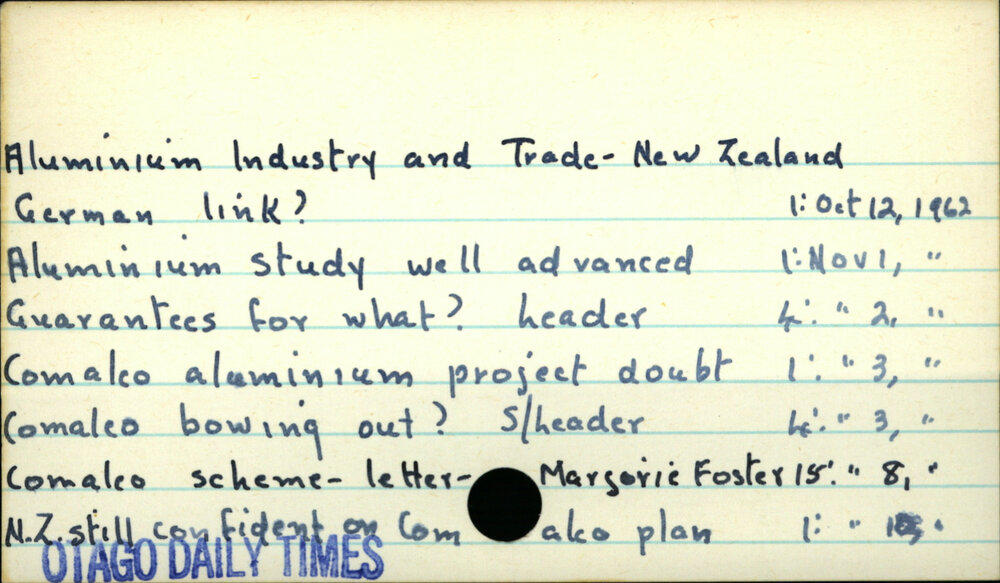 Aluminium Industry and Trade- New Zealand
German link? 1: Oct 12, 1962
Aluminium study well advanced 1: Nov 1, "
Guarantees for what? Leader 4: " 2, "
Comalco aluminium project doubt 1: " 3, "
Comalco bowing out? S/leader 4: " 3, "
Comalco scheme- letter- Marjorie Foster 15: " 8, "
N.Z. still confident on Comalco plan 1: " "
OTAGO DAILY TIMES